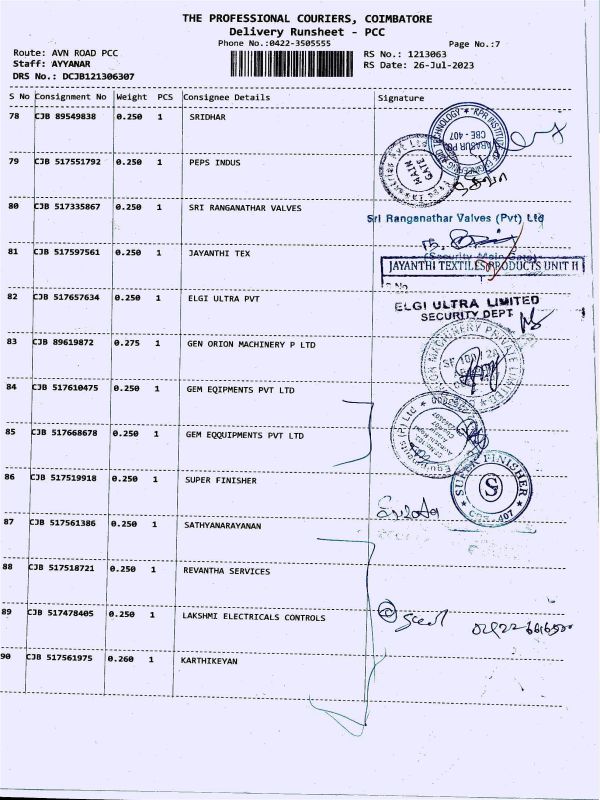 THE PROFESSIONAL COURIERS, COIMBATORE
Delivery Runsheet - PCC
Phone No.:0422-3505555
Page No.:7
Route: AVN ROAD PCC
RS No.: 1213063
Staff: AYYANAR
RS Date: 26-Jul-2023
DRS No.: DCJB121306307
S No Consignment No Weight PCS Consignee Details Signature
78 CJB 89549838 0.250 1 SRIDHAR
79 CJB 517551792 0.250 1 PEPS INDUS
MAIN GATE
80 CJB 517335867 0.250 1 SRI RANGANATHAR VALVES
Sri Ranganathar Valves (Pvt) Ltd
(Security Main Gate)
81 CJB 517597561 0.250 1 JAYANTHI TEX
JAYANTHI TEXTILES PRODUCTS UNIT II
82 CJB 517657634 0.250 1 ELGI ULTRA PVT
ELGI ULTRA LIMITED
SECURITY DEPT
83 CJB 89619872 0.275 1 GEN ORION MACHINERY P LTD
MACHINERY PRIVATE LIMITED
84 CJB 517610475 0.250 1 GEM EQIPMENTS PVT LTD
85 CJB 517668678 0.250 1 GEM EQQUIPMENTS PVT LTD
86 CJB 517519918 0.250 1 SUPER FINISHER
SUPER FINISHER
S
87 CJB 517561386 0.250 1 SATHYANARAYANAN
88 CJB 517518721 0.250 1 REVANTHA SERVICES
89 CJB 517478405 0.250 1 LAKSHMI ELECTRICALS CONTROLS
90 CJB 517561975 0.260 1 KARTHIKEYAN